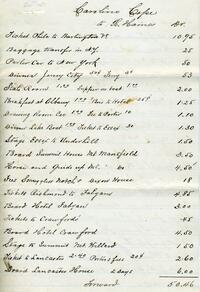 Caroline Cope
to R. Haines Dr.
Ticket Phila to Burlington Vt 10.95
Baggage transfer in NY. .25
Parlor Car to New York .50
Dinner Jersey City 50¢ 3¢ .53
State Room 1.00 Supper on boat 1.00 2.00
Breakfast at Albany 1.00 to Hotel 25¢ 1.25
Drawing Room Car 1.00 to Porter 10 1.10
Dinner Lake Boat 1.00 Ticket to Essex .30 1.30
Stage Essex to Underhill 1.50
Board Summit House Mt Mansfield 3.50
Horse and Guide up Mt. 4.50
House .50
Tickets Richmond to Fabyans 4.85
Board Hotel Fabyans 3.00
Tickets to Crawfords .45
Board Hotel Crawford 4.50
Stage to Summit Mt Willard 1.50
Ticket to Lancaster 2.40 Porters fees 20¢ 2.60
Board Lancaster House 2 days 6.00
Forward 50.46